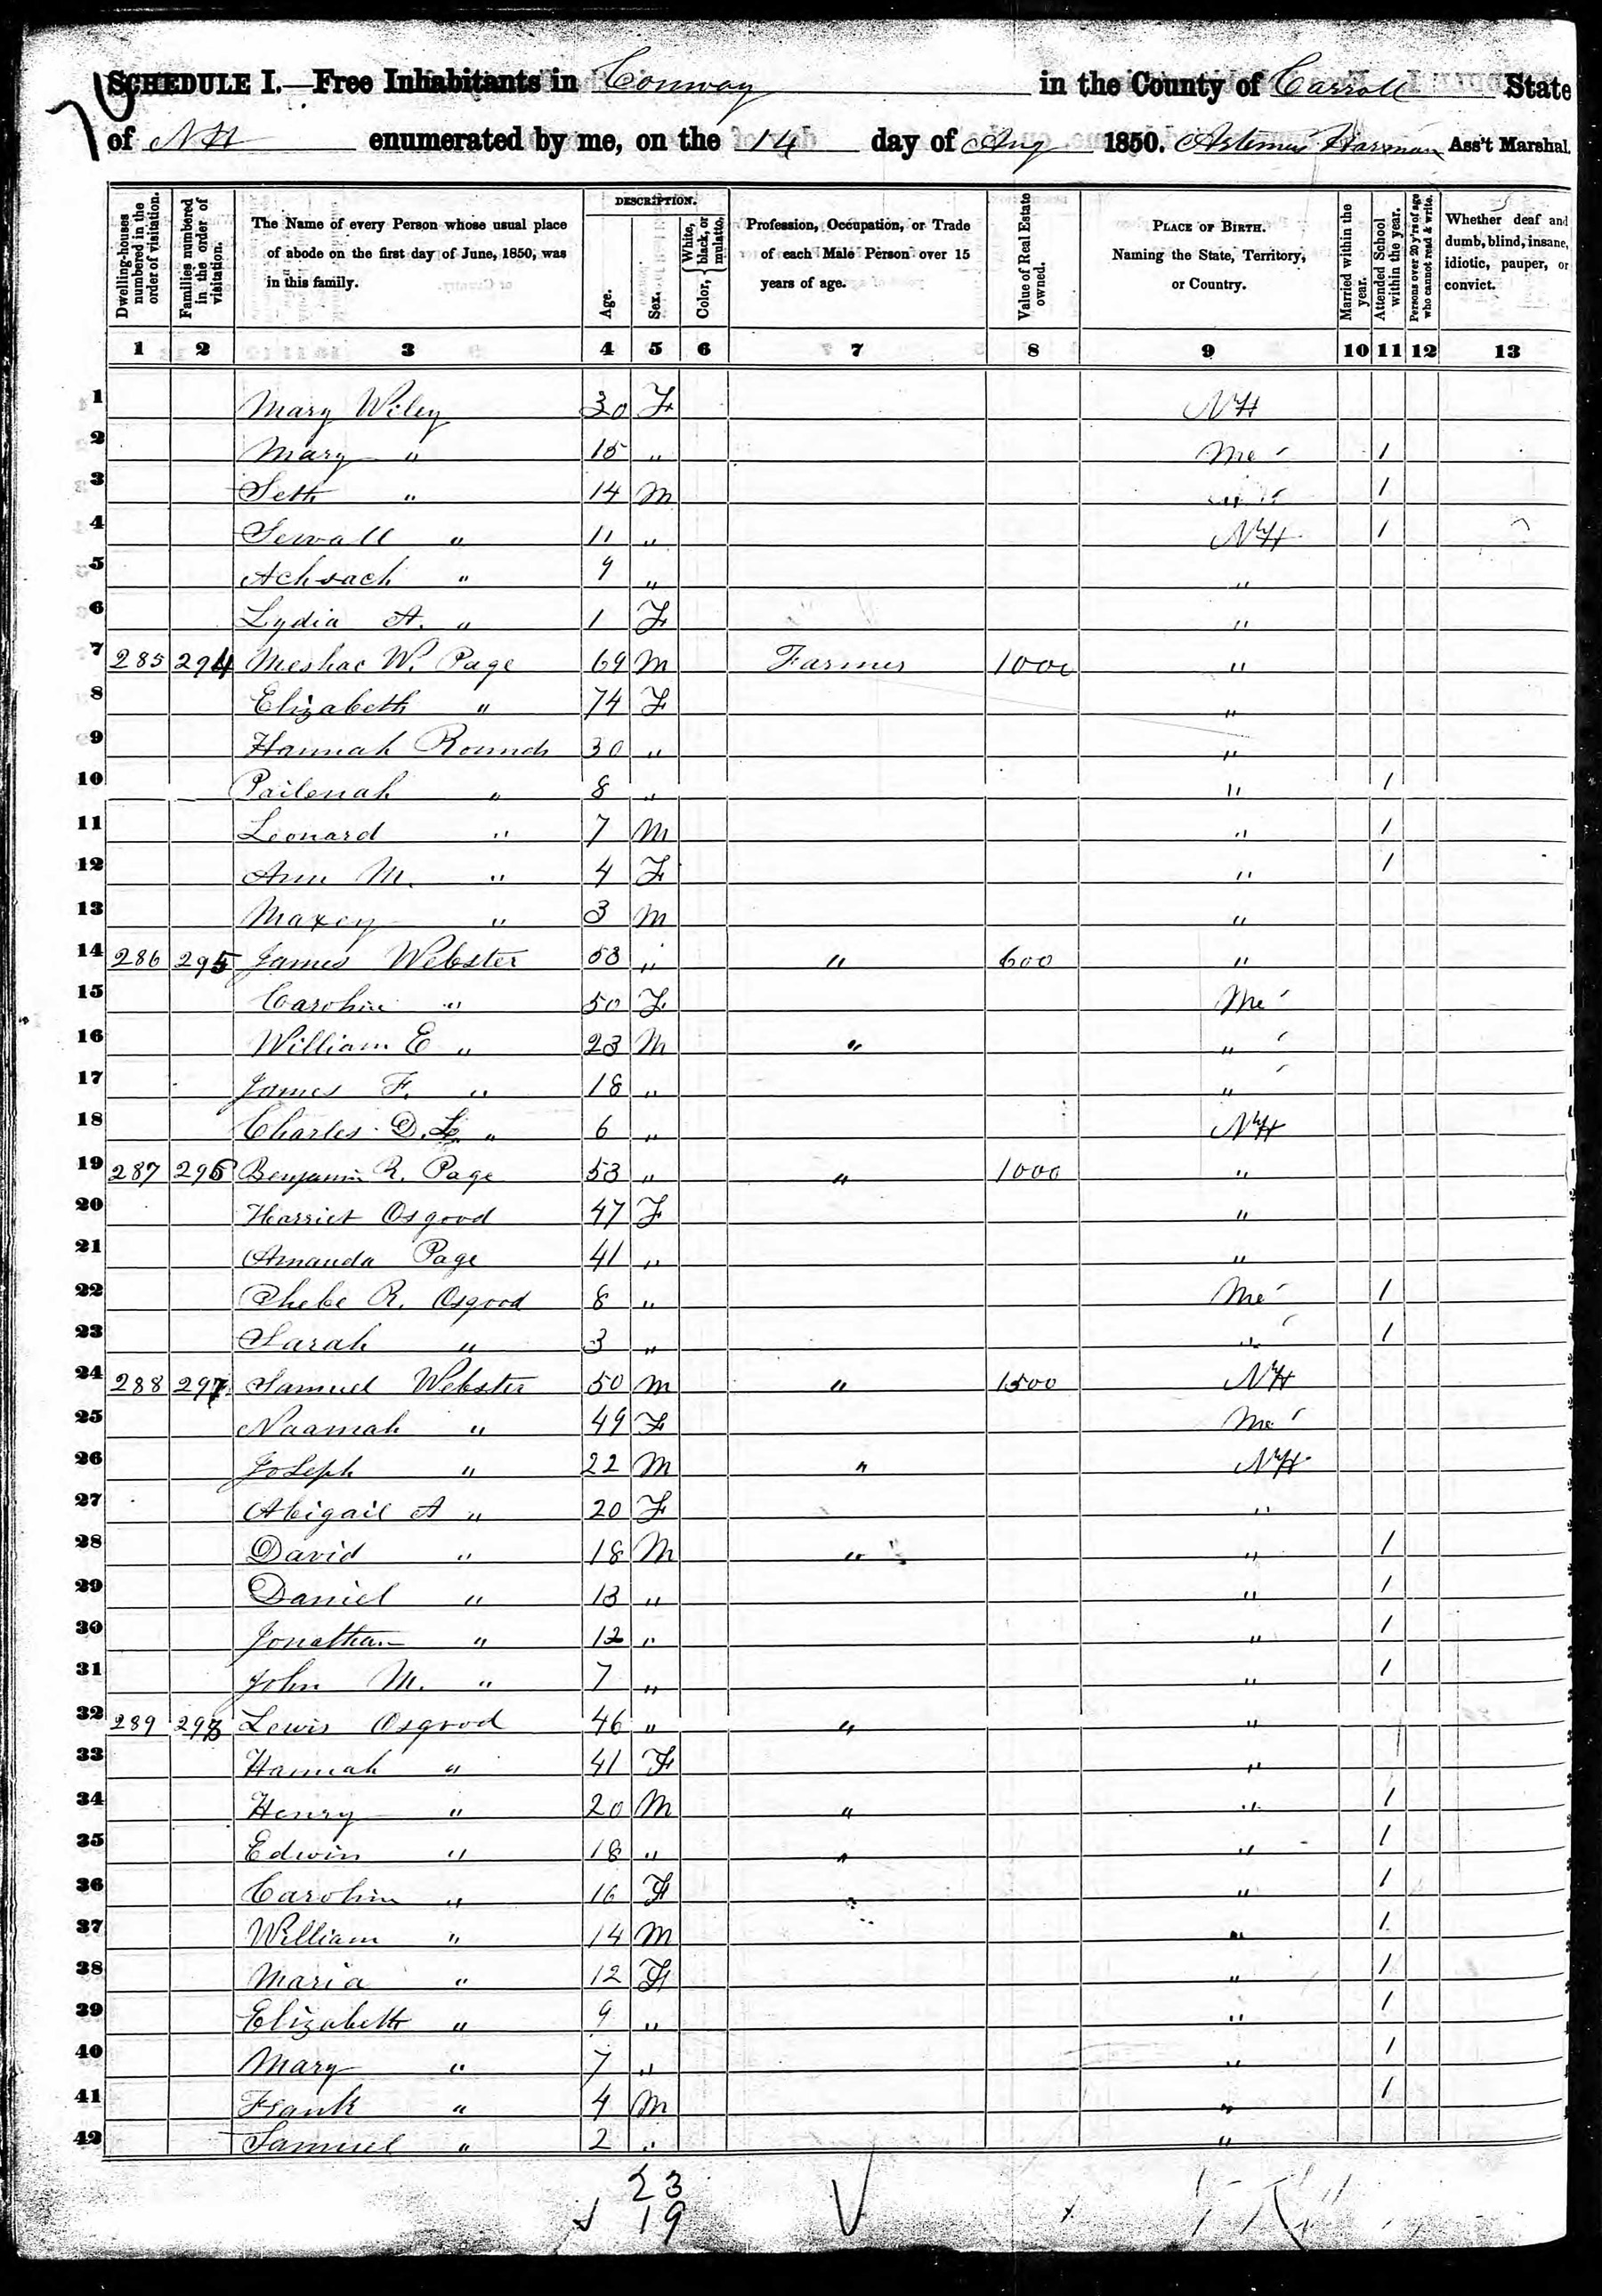 70
SCHEDULE I.—Free Inhabitants in Conway in the County of Carroll State
of NH enumerated by me, on the 14 day of Aug 1850. Artemus Harmon Ass't Marshal.
Dwelling-houses numbered in the order of visitation.
Families numbered in the order of visitation.
The Name of every Person whose usual place of abode on the first day of June, 1850, was in this family.
DESCRIPTION.
Age.
Sex.
Color, { White, black, or mulatto.
Profession, Occupation, or Trade of each Male Person over 15 years of age.
Value of Real Estate owned.
PLACE OF BIRTH. Naming the State, Territory, or Country.
Married within the year.
Attended School within the year.
Persons over 20 y'rs of age who cannot read & write.
Whether deaf and dumb, blind, insane, idiotic, pauper, or convict.
1 2 3 4 5 6 7 8 9 10 11 12 13
1 Mary Wiley 30 F NH
2 Mary " 15 " Me 1
3 Seth " 14 M " 1
4 Sewall " 11 " NH 1
5 Achsach " 9 " "
6 Lydia A. " 1 F "
7 285 294 Meshac W. Page 69 M Farmer 1000 "
8 Elizabeth " 74 F "
9 Hannah Rounds 30 " "
10 Pailenah " 8 " " 1
11 Leonard " 7 M " 1
12 Ann M. " 4 F " 1
13 Maxcy " 3 M "
14 286 295 James Webster 53 " " 600 "
15 Caroline " 50 F Me
16 William E " 23 M " "
17 James F. " 18 " "
18 Charles D. L. " 6 " NH
19 287 296 Benjamin R. Page 53 " " 1000 "
20 Harriet Osgood 47 F "
21 Amanda Page 41 " "
22 Phebe R. Osgood 8 " Me 1
23 Sarah " 3 " " 1
24 288 297 Samuel Webster 50 M " 1500 NH
25 Naamah " 49 F Me
26 Joseph " 22 M " NH
27 Abigail A " 20 F "
28 David " 18 M " " 1
29 Daniel " 13 " " 1
30 Jonathan " 12 " " 1
31 John M. " 7 " " 1
32 289 298 Lewis Osgood 46 " " "
33 Hannah " 41 F "
34 Henry " 20 M " " 1
35 Edwin " 18 " " " 1
36 Caroline " 16 F " 1
37 William " 14 M " 1
38 Maria " 12 F " 1
39 Elizabeth " 9 " " 1
40 Mary " 7 " " 1
41 Frank " 4 M " 1
42 Samuel " 2 " "
23
19